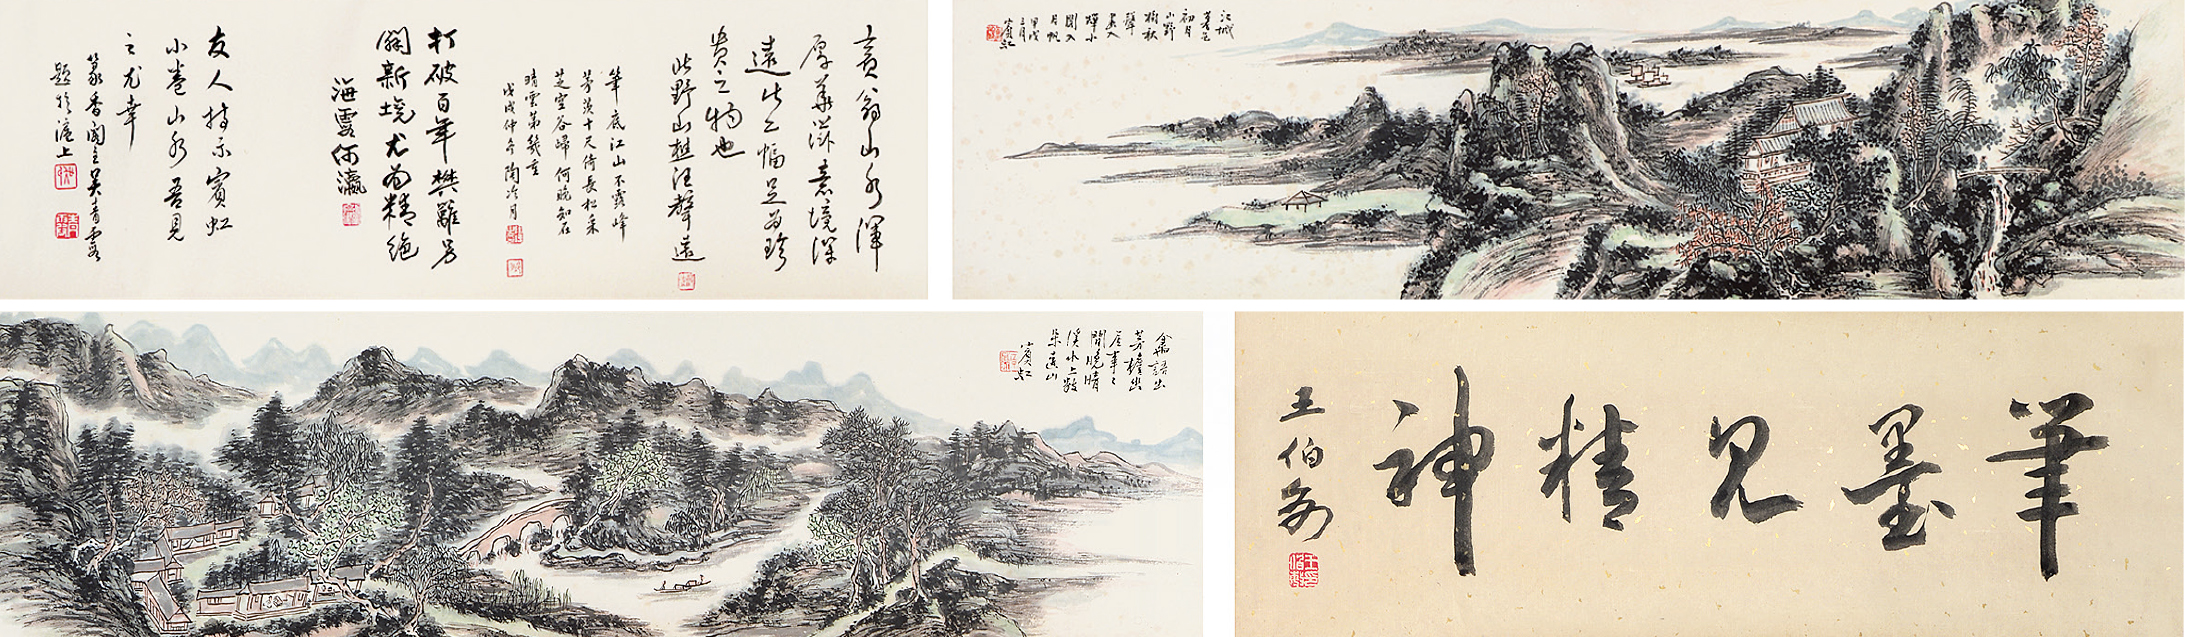 黃翁山水渾
厚華滋意境深
遠此二幅足為珍
貴之物也
此野山樵汪聲遠
筆底江山不露峰
茅茨十尺倚長松采
芝空谷歸何晚知在
晴雲第幾重
戊戌仲冬陶冷月
打破百年樊離另
闢新境尤為精絕
海雲何瀛
友人持示賓虹
小卷山水吾見
之尤幸
篆香閣主吳青霞
題於滬上
江城
暮色
初月
山野
樹秋
聲
人
小
閣入
月帆
甲戌
三月
賓虹
禽語出
茅檐出
居事々
閒曉晴
溪水上數
朵遠山
賓虹
筆墨見精神
王伯敏